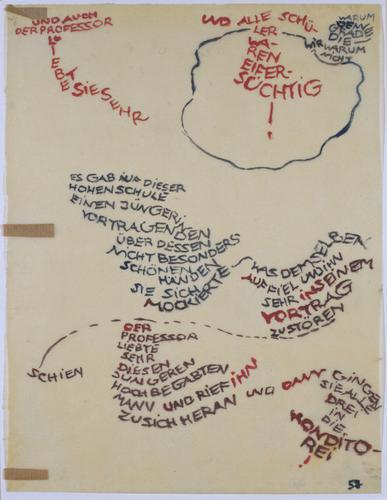 UND AUCH
DER PROFESSOR
LIEBTE SIE SEHR
UND ALLE SCHÜ-
LER
WA-
REN
EIFER-
SÜCHTIG
!
WARUM
DENN
GRADE
DIE —
WIR WARUM
NICHT
ES GAB AUF DIESER
HOHENSCHULE
EINEN JÜNGERN
VORTRAGENDEN
ÜBER DESSEN
NICHT BESONDERS
SCHÖNEN
HÄNDEN
SIE SICH
MOCKIERTE
WAS DEMSELBEN
AUFFIEL UND IHN
SEHR IN SEINEM
VORTRAG
ZU STÖREN
SCHIEN
DER
PROFESSOR
LIEBTE
SEHR
DIESEN
JÜNGEREN
HOCHBEGABTEN
MANN UND RIEF IHN
ZU SICH HERAN
UND DANN GINGEN
SIE ALLE
DREI
IN
DIE
KONDITO-
REI
57